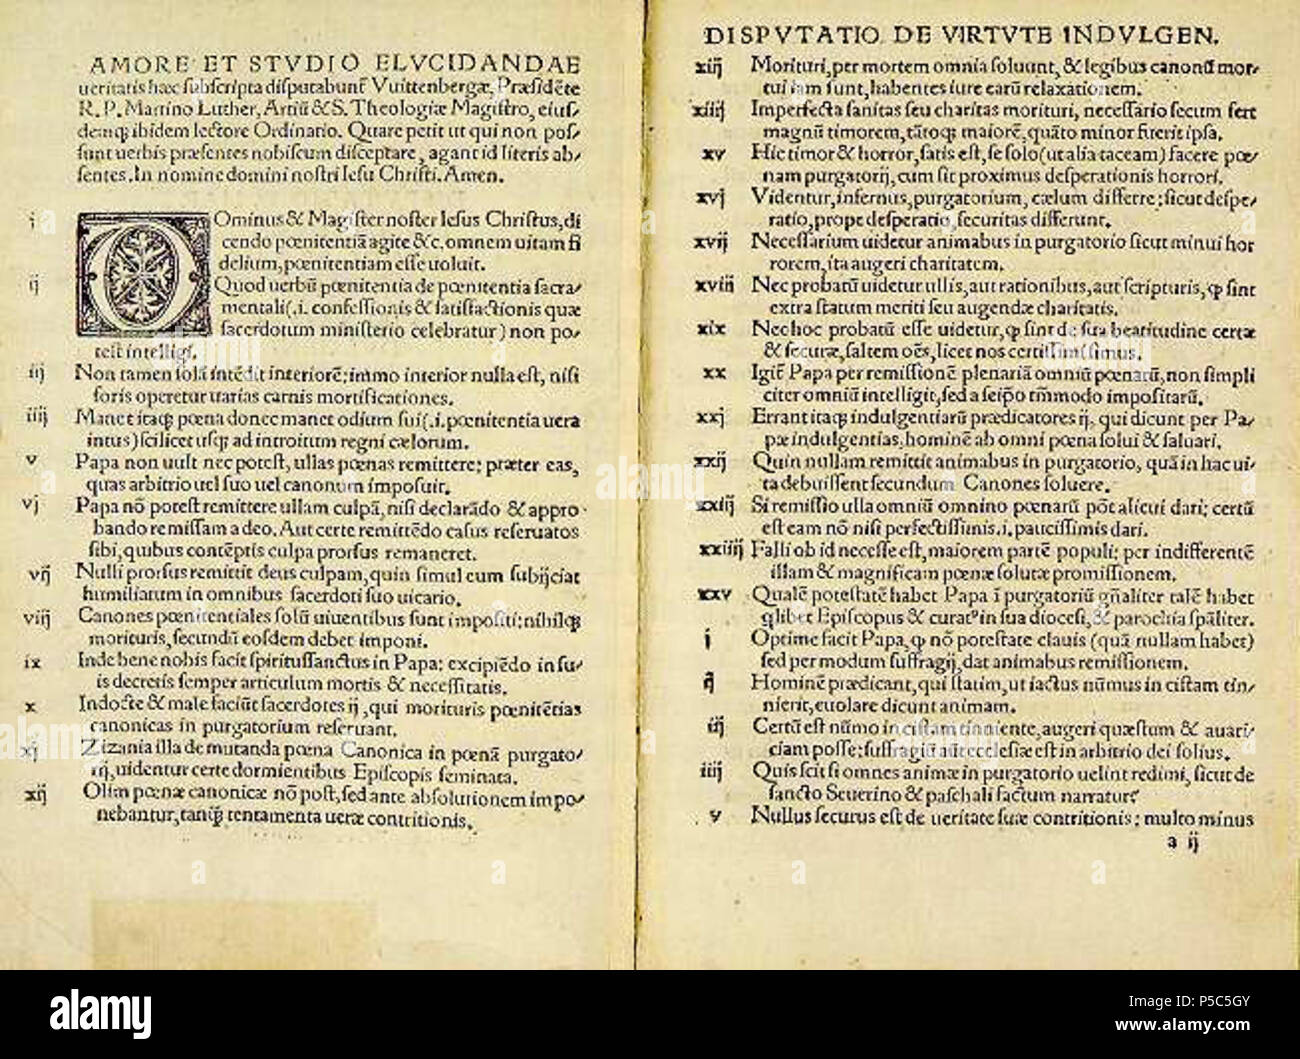 AMORE ET STVDIO ELVCIDANDAE
ueritatis hæc subscripta disputabunt᷑ Vuittenbergæ, Præsidẽte
R. P. Martino Luther, Artiũ & S. Theologiæ Magistro, eius/
demq; ibidem lectore Ordinario. Quare petit ut qui non pos/
sunt uerbis præsentes nobiscum disceptare, agant id literis ab/
sentes. In nomine domini nostri Iesu Christi. Amen.
i DOminus & Magister noster Iesus Christus, di
cendo pœnitentiã agite &c. omnem uitam fi
delium, pœnitentiam esse uoluit.
ij Quod uerbũ pœnitentia de pœnitentia sacra/
mentali (.i. confessionis & satisfactionis quæ
sacerdotum ministerio celebratur) non po/
test intelligi.
iij Non tamen solã intẽdit interiorẽ: immo interior nulla est, nisi
foris operetur uarias carnis mortificationes.
iiij Manet itaq; pœna donec manet odium sui (.i. pœnitentia uera
intus) scilicet usq; ad introitum regni cælorum.
v Papa non uult nec potest, ullas pœnas remittere: præter eas,
quas arbitrio uel suo uel canonum imposuit.
vj Papa nõ potest remittere ullam culpã, nisi declarãdo & appro/
bando remissam a deo. Aut certe remittẽdo casus reseruatos
sibi, quibus contẽptis culpa prorsus remaneret.
vij Nulli prorsus remittit deus culpam, quin simul eum subijciat
humiliatum in omnibus sacerdoti suo uicario.
viij Canones pœnitentiales solũ uiuentibus sunt impositi: nihilq;
morituris, secundũ eosdem debet imponi.
ix Inde bene nobis facit spiritussanctus in Papa: excipiẽdo in su/
is decretis semper articulum mortis & necessitatis.
x Indocte & male faciũt sacerdotes ij, qui morituris pœnitẽtias
canonicas in purgatorium reseruant.
xj Zizania illa de mutanda pœna Canonica in pœnã purgato/
rij, uidentur certe dormientibus Episcopis seminata.
xij Olim pœnæ canonicæ nõ post, sed ante absolutionem impo/
nebantur, tanq̃ tentamenta ueræ contritionis.
DISPVTATIO DE VIRTVTE INDVLGEN.
xiij Morituri, per mortem omnia soluunt, & legibus canonũ mor/
tui iam sunt, habentes iure earũ relaxationem.
xiiij Imperfecta sanitas seu charitas morituri, necessario secum fert
magnũ timorem, tãtoq; maiorẽ, quãto minor fuerit ipsa.
xv Hic timor & horror, satis est, se solo (ut alia taceam) facere pœ/
nam purgatorij, cum sit proximus desperationis horrori.
xvj Videntur, infernus, purgatorium, cælum differre: sicut despe/
ratio, prope desperatio, securitas differunt.
xvij Necessarium uidetur animabus in purgatorio sicut minui hor
rorem, ita augeri charitatem.
xviij Nec probatũ uidetur ullis, aut rationibus, aut scripturis, ꝙ sint
extra statum meriti seu augendæ charitatis.
xix Nec hoc probatũ esse uidetur, ꝙ sint de sua beatitudine certæ
& securæ, saltem oẽs, licet nos certissimi simus.
xx Igit᷑ Papa per remissionẽ plenariã omniũ pœnarũ, non simpli
citer omniũ intelligit, sed a seip̃o tm̃modo impositarũ.
xxj Errant itaq; indulgentiarũ prædicatores ij, qui dicunt per Pa/
pæ indulgentias, hominẽ ab omni pœna solui & saluari.
xxij Quin nullam remittit animabus in purgatorio, quã in hac ui/
ta debuissent secundum Canones soluere.
xxiij Si remissio ulla omniũ omnino pœnarũ põt alicui dari: certũ
est eam nõ nisi perfectissimis .i. paucissimis dari.
xxiiij Falli ob id necesse est, maiorem partẽ populi: per indifferentẽ
illam & magnificam pœnæ solutæ promissionem.
xxv Qualẽ potestatẽ habet Papa ĩ purgatoriũ gñaliter talẽ habet
q̃libet Episcopus & curat᷒ in sua diocesi, & parochia sp̃aliter.
i Optime facit Papa, ꝙ nõ potestate clauis (quã nullam habet)
sed per modum suffragij, dat animabus remissionem.
ij Hominẽ prædicant, qui statim, ut iactus nũmus in cistam tin/
nierit, euolare dicunt animam.
iij Certũ est nũmo in cistam tinniente, augeri quæstum & auari/
ciam posse: suffragiũ aũt ecclesiæ est in arbitrio dei solius.
iiij Quis scit si omnes animæ in purgatorio uelint redimi, sicut de
sancto Seuerino & paschali factum narratur?
v Nullus securus est de ueritate suæ contritionis: multo minus
a ij
alamy
alamy
Image ID: P5C5GY
www.alamy.com